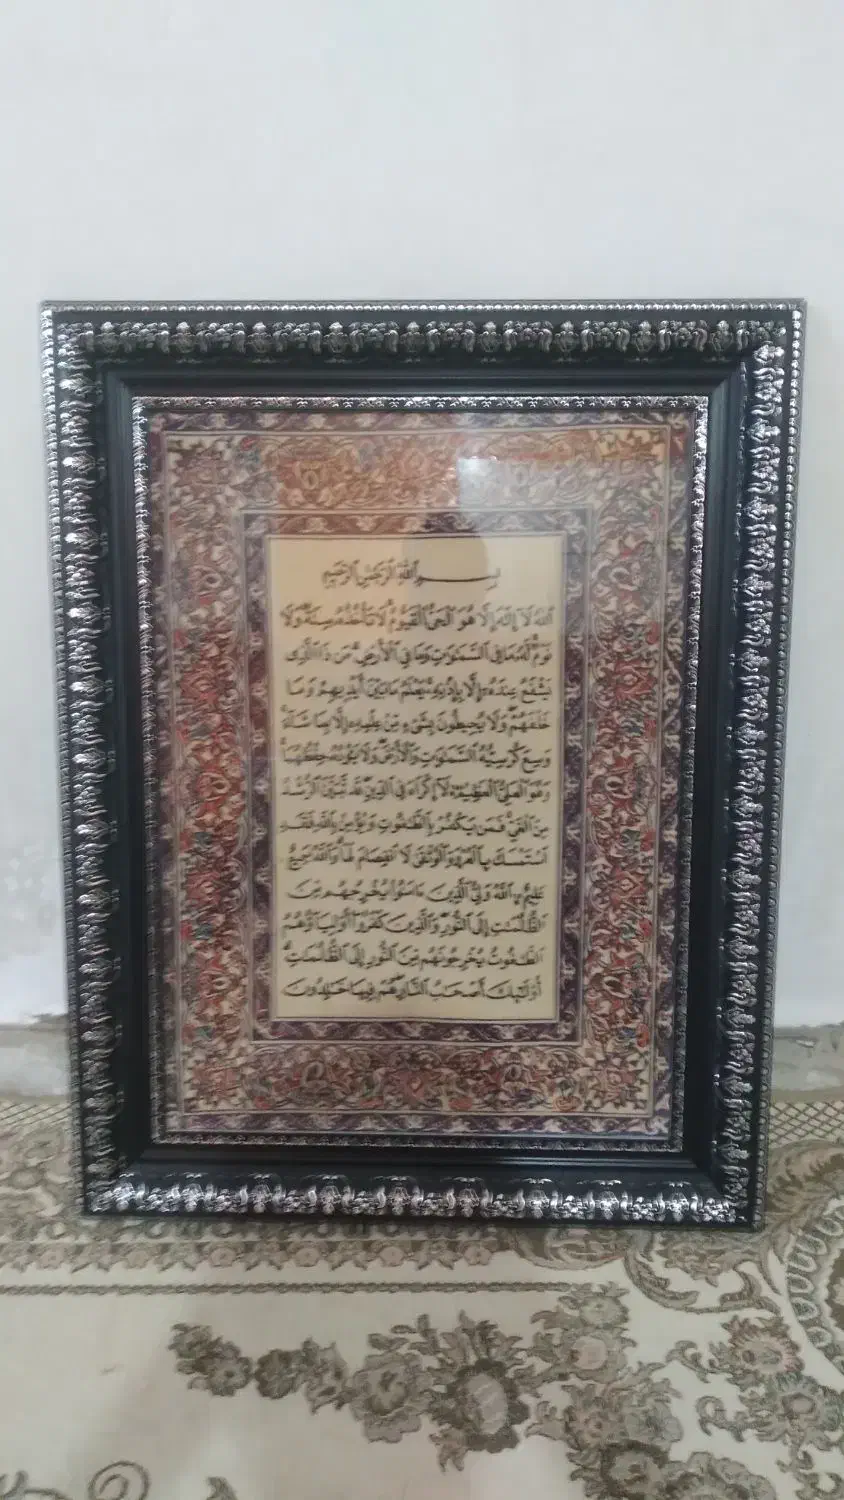 بِسْمِ اللَّهِ الرَّحْمَٰنِ الرَّحِيمِ
اللَّهُ لَا إِلَٰهَ إِلَّا هُوَ الْحَيُّ الْقَيُّومُ لَا تَأْخُذُهُ سِنَةٌ وَلَا
نَوْمٌ لَهُ مَا فِي السَّمَٰوَاتِ وَمَا فِي الْأَرْضِ مَن ذَا الَّذِي
يَشْفَعُ عِندَهُ إِلَّا بِإِذْنِهِ يَعْلَمُ مَا بَيْنَ أَيْدِيهِمْ وَمَا
خَلْفَهُمْ وَلَا يُحِيطُونَ بِشَيْءٍ مِّنْ عِلْمِهِ إِلَّا بِمَا شَاءَ
وَسِعَ كُرْسِيُّهُ السَّمَٰوَاتِ وَالْأَرْضَ وَلَا يَئُودُهُ حِفْظُهُمَا
وَهُوَ الْعَلِيُّ الْعَظِيمُ لَا إِكْرَاهَ فِي الدِّينِ قَد تَّبَيَّنَ الرُّشْدُ
مِنَ الْغَيِّ فَمَن يَكْفُرْ بِالطَّٰغُوتِ وَيُؤْمِن بِاللَّهِ فَقَدِ
اسْتَمْسَكَ بِالْعُرْوَةِ الْوُثْقَىٰ لَا انفِصَامَ لَهَا وَاللَّهُ سَمِيعٌ
عَلِيمٌ اللَّهُ وَلِيُّ الَّذِينَ ءَامَنُوا يُخْرِجُهُم مِّنَ
الظُّلُمَٰتِ إِلَى النُّورِ وَالَّذِينَ كَفَرُوا أَوْلِيَاؤُهُمُ
الطَّٰغُوتُ يُخْرِجُونَهُم مِّنَ النُّورِ إِلَى الظُّلُمَٰتِ
أُولَٰئِكَ أَصْحَٰبُ النَّارِ هُمْ فِيهَا خَٰلِدُونَ